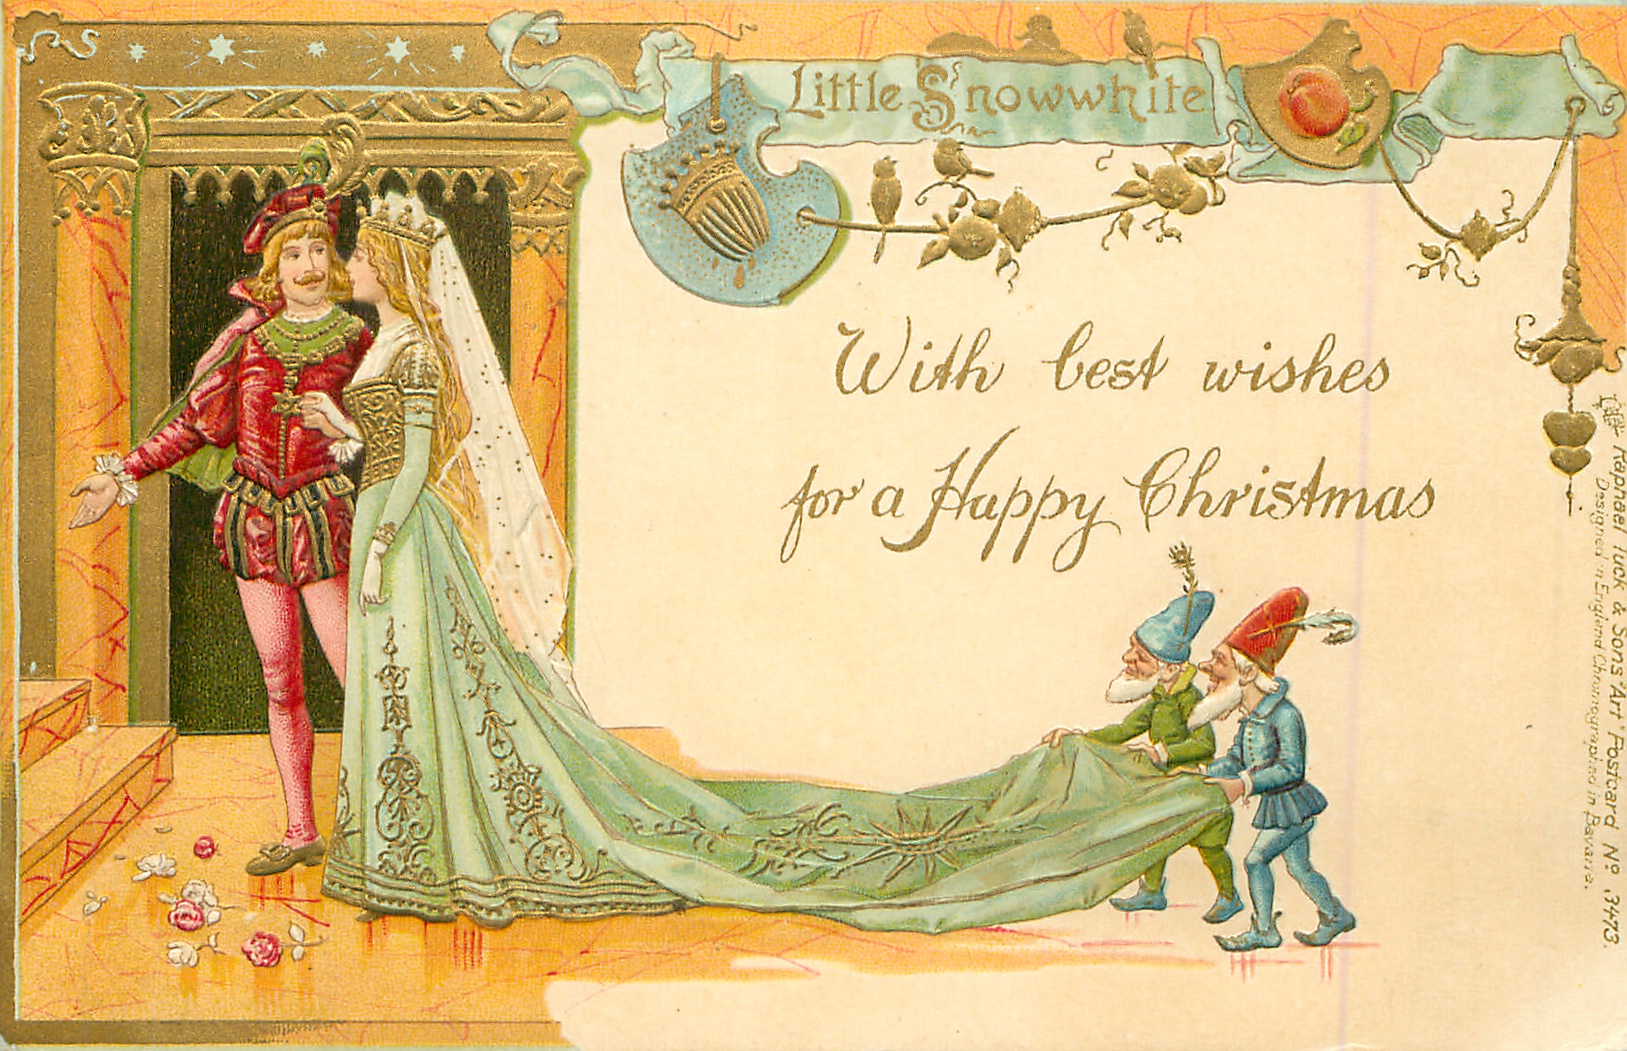 Little Snowwhite
With best wishes
for a Happy Christmas
Raphael Tuck & Sons "Art" Postcard Nº 3473.
Designed in England Chromographed in Bavaria.